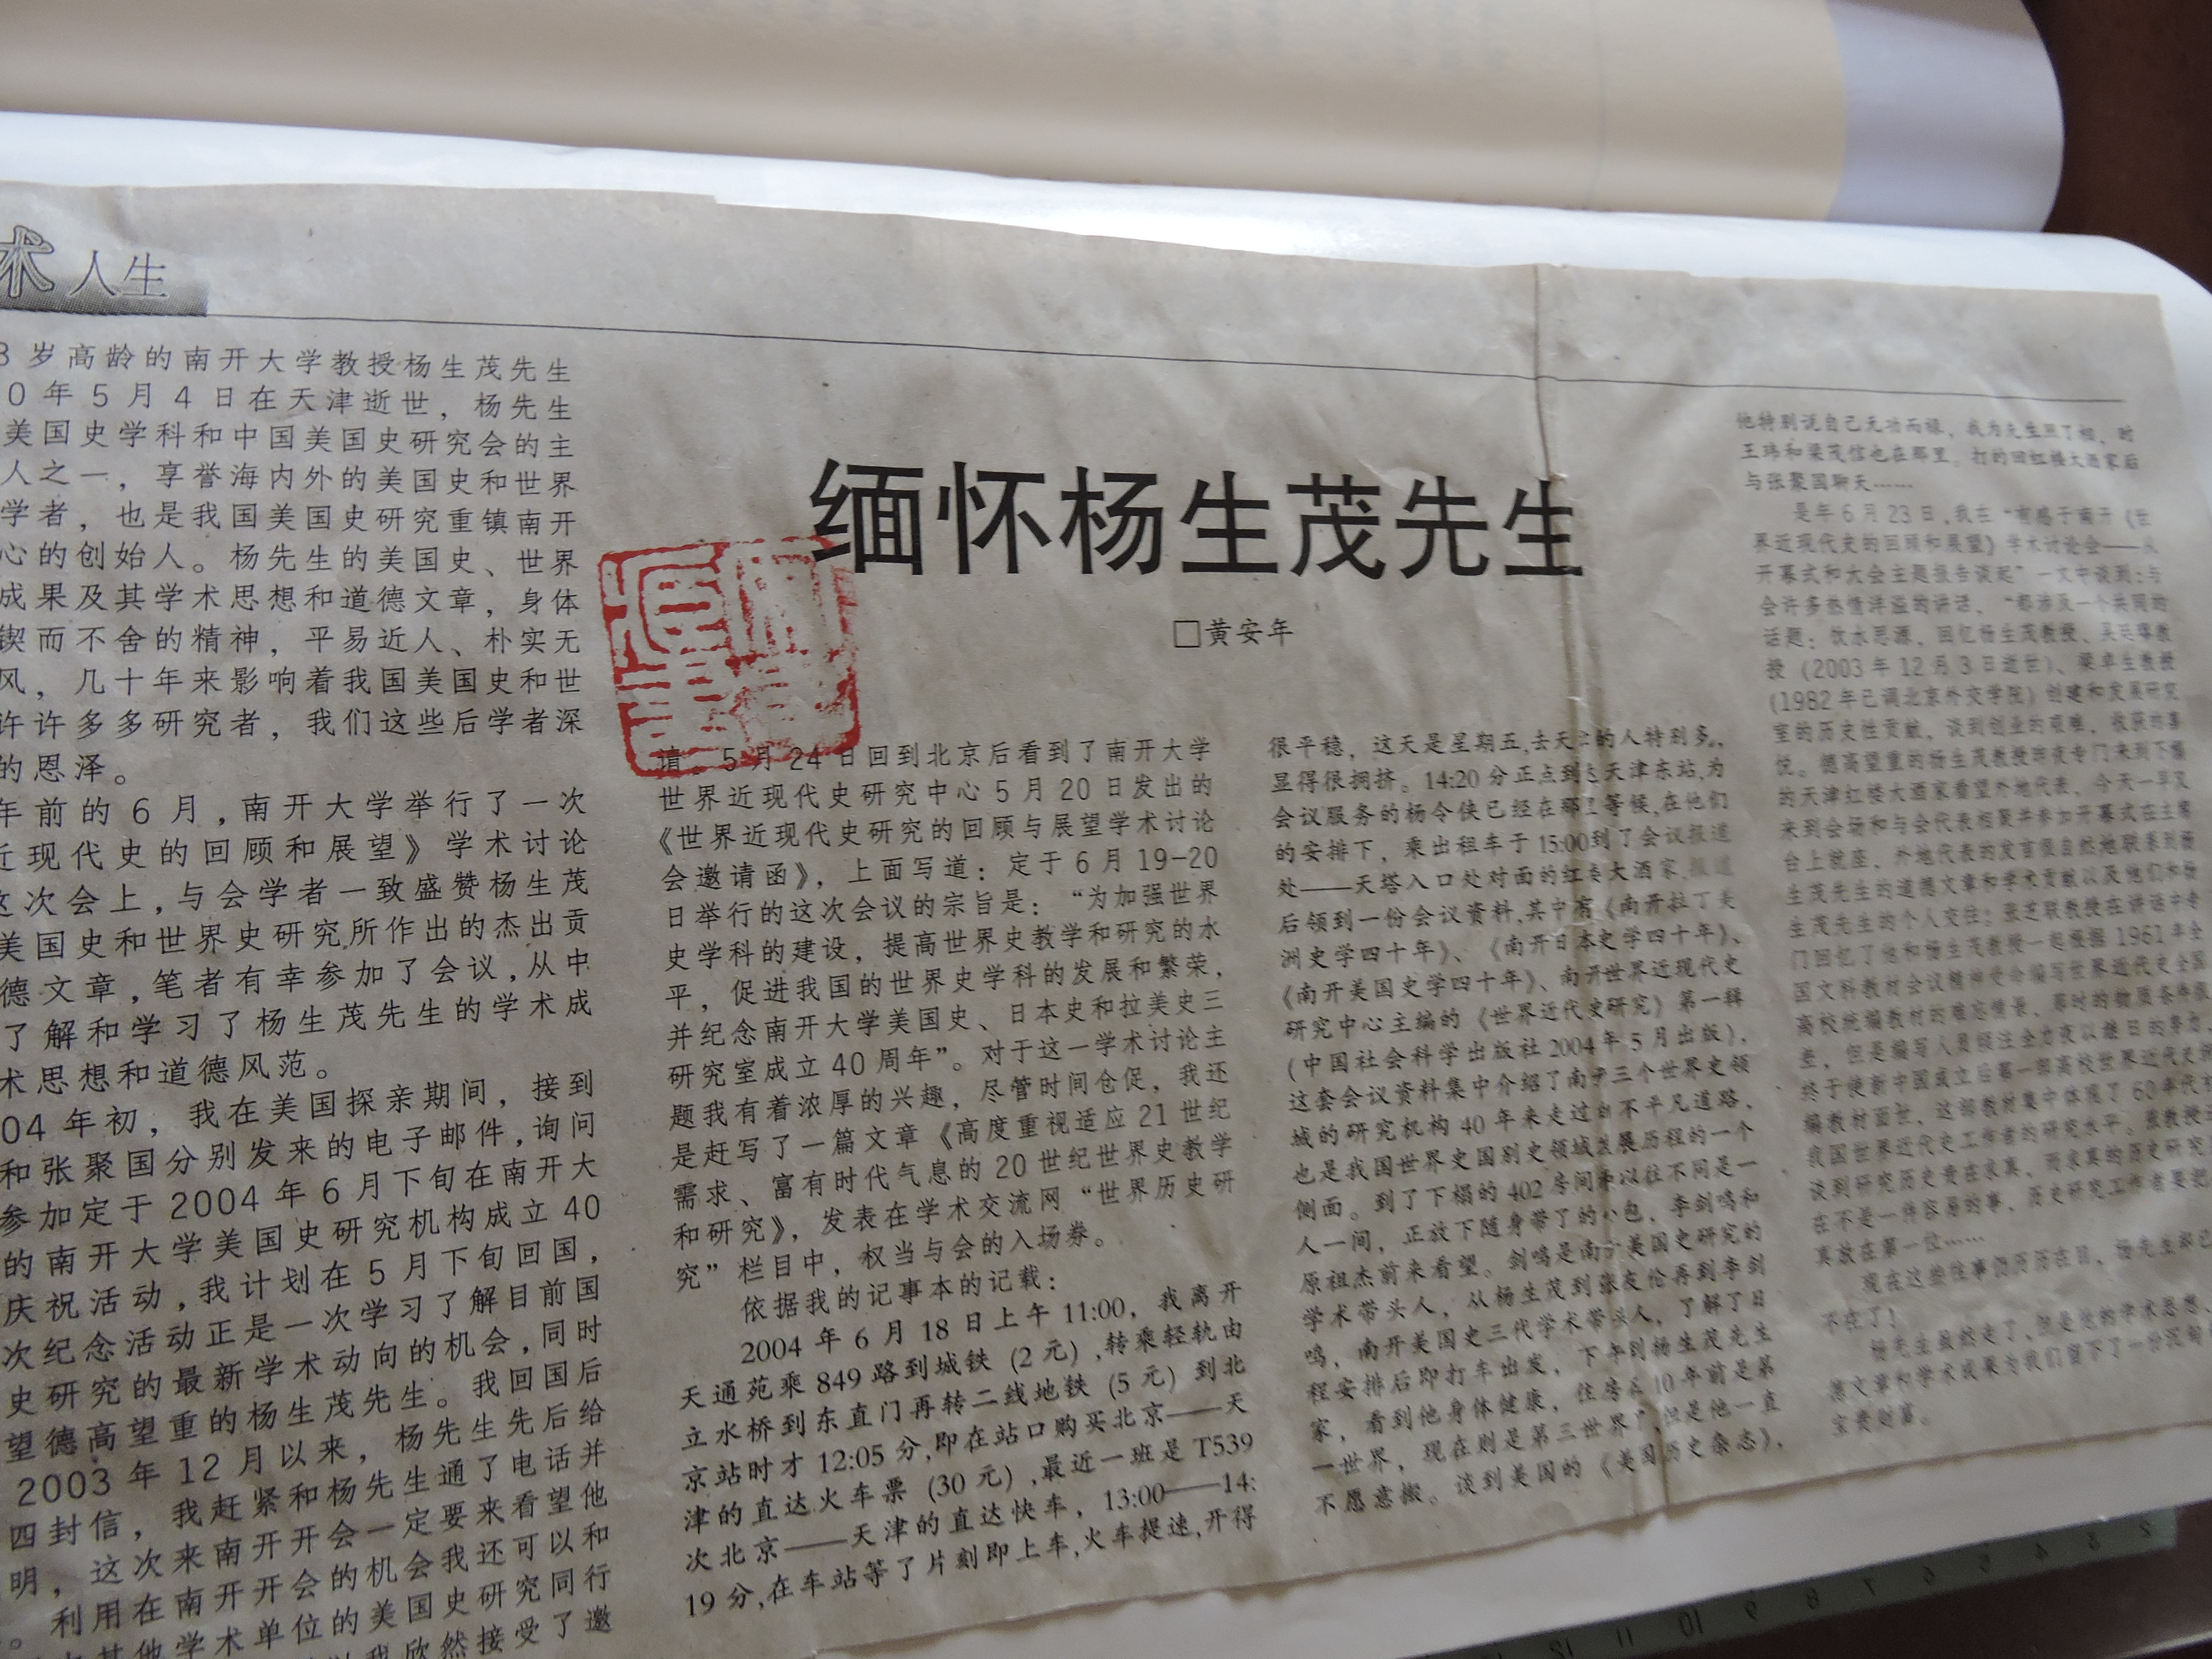 术人生
缅怀杨生茂先生
□黄安年
岁高龄的南开大学教授杨生茂先生
0年5月4日在天津逝世，杨先生
美国史学科和中国美国史研究会的主
人之一，享誉海内外的美国史和世界
学者，也是我国美国史研究重镇南开
心的创始人。杨先生的美国史、世界
成果及其学术思想和道德文章，身体
锲而不舍的精神，平易近人、朴实无
风，几十年来影响着我国美国史和世
许许多多研究者，我们这些后学者深
的恩泽。
年前的6月，南开大学举行了一次
近现代史的回顾和展望》学术讨论
这次会上，与会学者一致盛赞杨生茂
美国史和世界史研究所作出的杰出贡
德文章，笔者有幸参加了会议，从中
了解和学习了杨生茂先生的学术成
术思想和道德风范。
04年初，我在美国探亲期间，接到
和张聚国分别发来的电子邮件，询问
参加定于2004年6月下旬在南开大
的南开大学美国史研究机构成立40
庆祝活动，我计划在5月下旬回国，
次纪念活动正是一次学习了解目前国
史研究的最新学术动向的机会，同时
望德高望重的杨生茂先生。我回国后
2003年12月以来，杨先生先后给
四封信，我赶紧和杨先生通了电话并
明，这次来南开开会一定要来看望他
。利用在南开开会的机会我还可以和
其他学术单位的美国史研究同行
我欣然接受了邀
请。5月24日回到北京后看到了南开大学
世界近现代史研究中心5月20日发出的
《世界近现代史研究的回顾与展望学术讨论
会邀请函》，上面写道：定于6月19-20
日举行的这次会议的宗旨是：“为加强世界
史学科的建设，提高世界史教学和研究的水
平，促进我国的世界史学科的发展和繁荣，
并纪念南开大学美国史、日本史和拉美史三
研究室成立40周年”。对于这一学术讨论主
题我有着浓厚的兴趣，尽管时间仓促，我还
是赶写了一篇文章《高度重视适应21世纪
需求、富有时代气息的20世纪世界史教学
和研究》，发表在学术交流网“世界历史研
究”栏目中，权当与会的入场券。
依据我的记事本的记载：
2004年6月18日上午11:00，我离开
天通苑乘849路到城铁（2元），转乘轻轨由
立水桥到东直门再转二线地铁（5元）到北
京站时才12:05分，即在站口购买北京——天
津的直达火车票（30元），最近一班是T539
次北京——天津的直达快车，13:00——14:
19分，在车站等了片刻即上车，火车提速，开得
很平稳，这天是星期五，去天津的人特别多，
显得很拥挤。14:20分正点到达天津东站，为
会议服务的杨令侠已经在那里等候，在他们
的安排下，乘出租车于15:00到了会议报道
处——天塔入口处对面的红楼大酒家，报道
后领到一份会议资料，其中有《南开拉丁美
洲史学四十年》、《南开日本史学四十年》、
《南开美国史学四十年》、南开世界近现代史
研究中心主编的《世界近代史研究》第一辑
（中国社会科学出版社2004年5月出版），
这套会议资料集中介绍了南开三个世界史领
域的研究机构40年来走过的不平凡道路，
也是我国世界史国别史领域发展历程的一个
侧面。到了下榻的402房间和以往不同是一
人一间，正放下随身带了的小包，李剑鸣和
原祖杰前来看望。剑鸣是南开美国史研究的
学术带头人，从杨生茂到张友伦再到李剑
鸣，南开美国史三代学术带头人，了解了日
程安排后即打车出发，下午到杨生茂先生
家，看到他身体健康，住房在10年前是第
一世界，现在则是第三世界”，但是他一直
不愿意搬。谈到美国的《美国历史杂志》，
他特别说自己无功而禄，我为先生照了相，时
王玮和梁茂信也在那里，打的回红楼大酒家后
与张聚国聊天……
是年6月23日，我在“有感于南开《世
界近现代史的回顾和展望》学术讨论会——从
开幕式和大会主题报告谈起”一文中谈到：与
会许多热情洋溢的讲话，“都涉及一个共同的
话题：饮水思源，回忆杨生茂教授、吴廷璆教
授（2003年12月3日逝世）、梁卓生教授
（1982年已调北京外交学院）创建和发展研究
室的历史性贡献，谈到创业的艰难，收获的喜
悦。德高望重的杨生茂教授昨夜专门来到下榻
的天津红楼大酒家看望外地代表，今天一早又
来到会场和与会代表相聚并参加开幕式在主席
台上就座，外地代表的发言很自然地联系到杨
生茂先生的道德文章和学术贡献以及他们和杨
生茂先生的个人交往；张芝联教授在讲话中专
门回忆了他和杨生茂教授一起根据1961年全
国文科教材会议精神受命编写世界近代史全国
高校统编教材的难忘情景，那时的物质条件很
差，但是编写人员倾注全力夜以继日的努力，
终于使新中国成立后第一部高校世界近代史统
编教材面世，这部教材集中体现了60年代
我国世界近代史工作者的研究水平。张教授
谈到研究历史贵在求真，而求真的历史研究
在不是一件容易的事，历史研究工作者要把
真放在第一位……
现在这些往事仍历历在目，杨先生却已
不在了！
杨先生虽然走了，但是他的学术思想、
德文章和学术成果为我们留下了一份沉甸
宝贵财富。
2 3 4 5 6 7 8 9 10 11 12